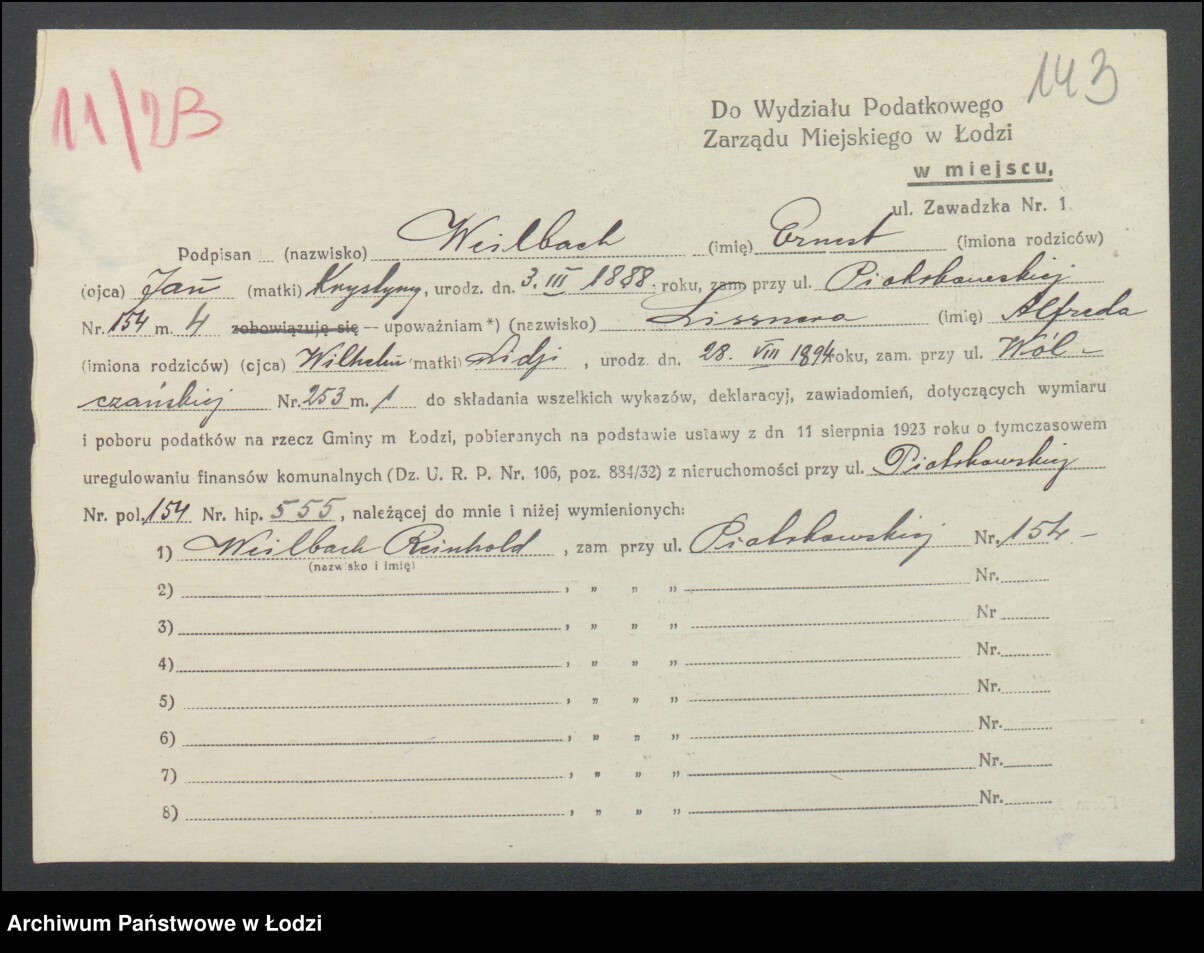 11/23
143
Do Wydziału Podatkowego
Zarządu Miejskiego w Łodzi
w miejscu,
ul. Zawadzka Nr. 1
Podpisan (nazwisko) Weilbach (imię) Ernest (imiona rodziców)
(ojca) Jan (matki) Krystyny, urodz. dn. 3. III 1888 roku, zam. przy ul. Piotrkowskiej
Nr. 154 m. 4 zobowiązuję się — upoważniam *) (nazwisko) Lissnera (imię) Alfreda
(imiona rodziców) (ojca) Wilhelm (matki) Lidji, urodz. dn. 28. VIII 1894 roku, zam. przy ul. Wól-
czańskiej Nr. 253 m. 1 do składania wszelkich wykazów, deklaracyj, zawiadomień, dotyczących wymiaru
i poboru podatków na rzecz Gminy m Łodzi, pobieranych na podstawie ustawy z dn 11 sierpnia 1923 roku o tymczasowem
uregulowaniu finansów komunalnych (Dz. U. R. P. Nr. 106, poz. 884/32) z nieruchomości przy ul. Piotrkowskiej
Nr. pol. 154 Nr. hip. 555, należącej do mnie i niżej wymienionych:
1) Weilbach Reinhold, zam. przy ul. Piotrkowskiej Nr. 154 -
(nazwisko i imię)
2) , " " " Nr.
3) , " " " Nr
4) , " " " Nr.
5) , " " " Nr.
6) , " " " Nr.
7) , " " " Nr.
8) , " " " Nr.
Archiwum Państwowe w Łodzi